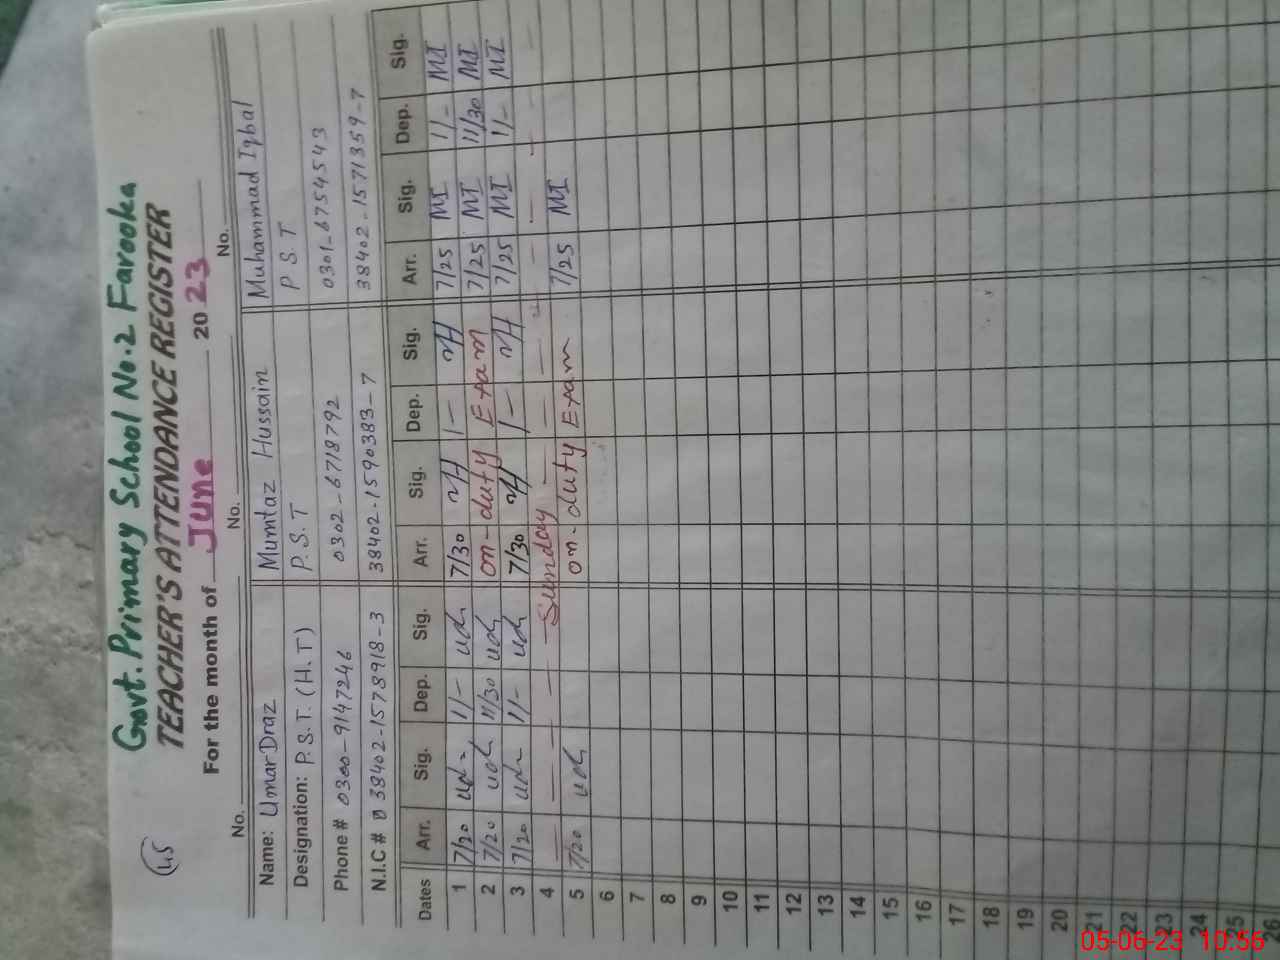 45
Govt. Primary School No.2 Farooka
TEACHER'S ATTENDANCE REGISTER
For the month of June 2023
No. No. No.
Name: Umar Draz Mumtaz Hussain Muhammad Iqbal
Designation: P.S.T. (H.T) P.S.T P S T
Phone # 0300-9147246 0302-6718792 0301-6754543
N.I.C # 38402-1578918-3 38402-1590383-7 38402-1571359-7
Dates Arr. Sig. Dep. Sig. Arr. Sig. Dep. Sig. Arr. Sig. Dep. Sig.
1 7/20 11/- 7/30 MH 1- MH 7/25 MI 11/- MI
2 7/20 11/30 on-duty Exam 7/25 MI 11/30 MI
3 7/20 11/- 7/30 MH 1- MH 7/25 MI 11/- MI
4 Sunday
5 7/20 on-duty Exam 7/25 MI
6
7
8
9
10
11
12
13
14
15
16
17
18
19
20
21
22
23
24
25
26
05-06-23 10:56